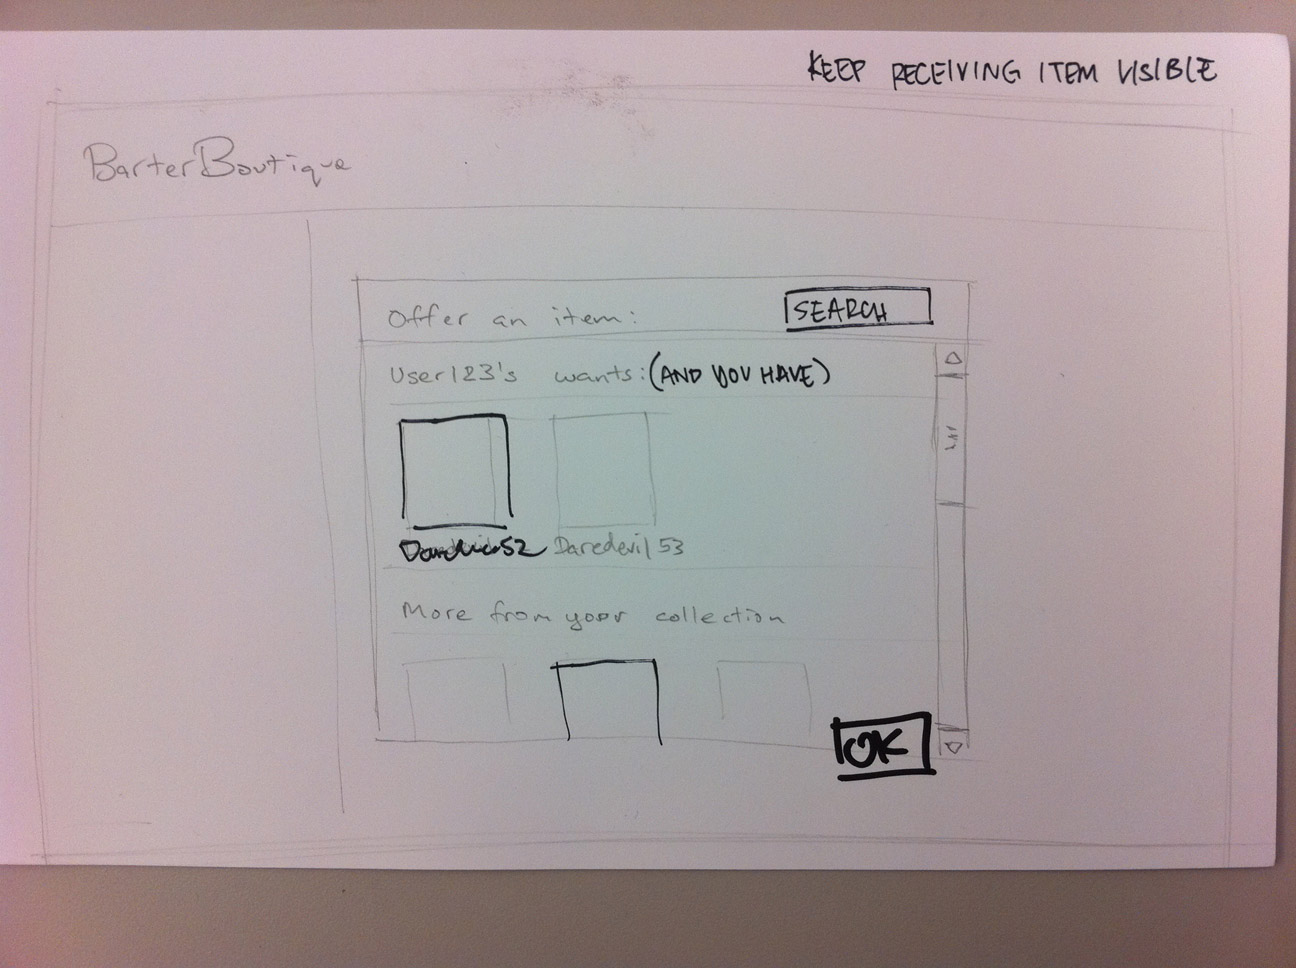 KEEP RECEIVING ITEM VISIBLE
BarterBoutique
Offer an item:
SEARCH
User123's wants: (AND YOU HAVE)
Daredevil 53
More from your collection
OK